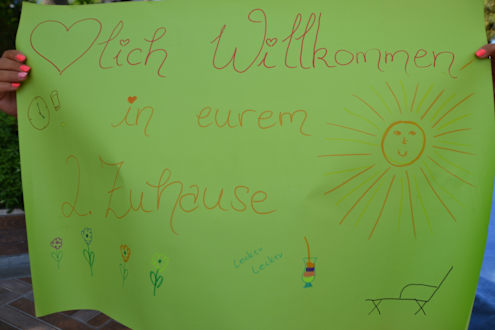 ♡lich Willkommen
! in eurem
2. Zuhause
Lecker
Lecker